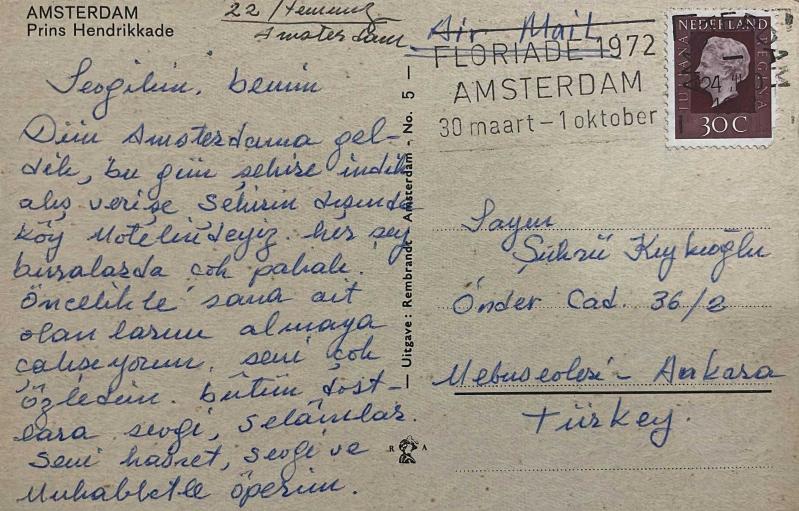 AMSTERDAM
Prins Hendrikkade
22/Temmuz
Amsterdam
Sevgilim, benim
Dün Amsterdama gel-
dik, bu gün şehire indik
alış verişe Şehirin dışında
köy Motelindeyiz. her şey
buralarda çok pahalı.
Öncelikle sana ait
olanlarını almaya
çalışıyorum. seni çok
özledim. bütün dost-
lara sevgi, selâmlar.
Seni hasret, sevgi ve
Muhabbetle öperim.
Uitgave: Rembrandt - Amsterdam - No. 5 -
R A
Air Mail
FLORIADE 1972
AMSTERDAM
30 maart - 1 oktober
NEDERLAND
JULIANA
REGINA
30 C
Sayın
Şükrü
Önder Cad. 36/2
Mebusevleri - Ankara
Türkey.